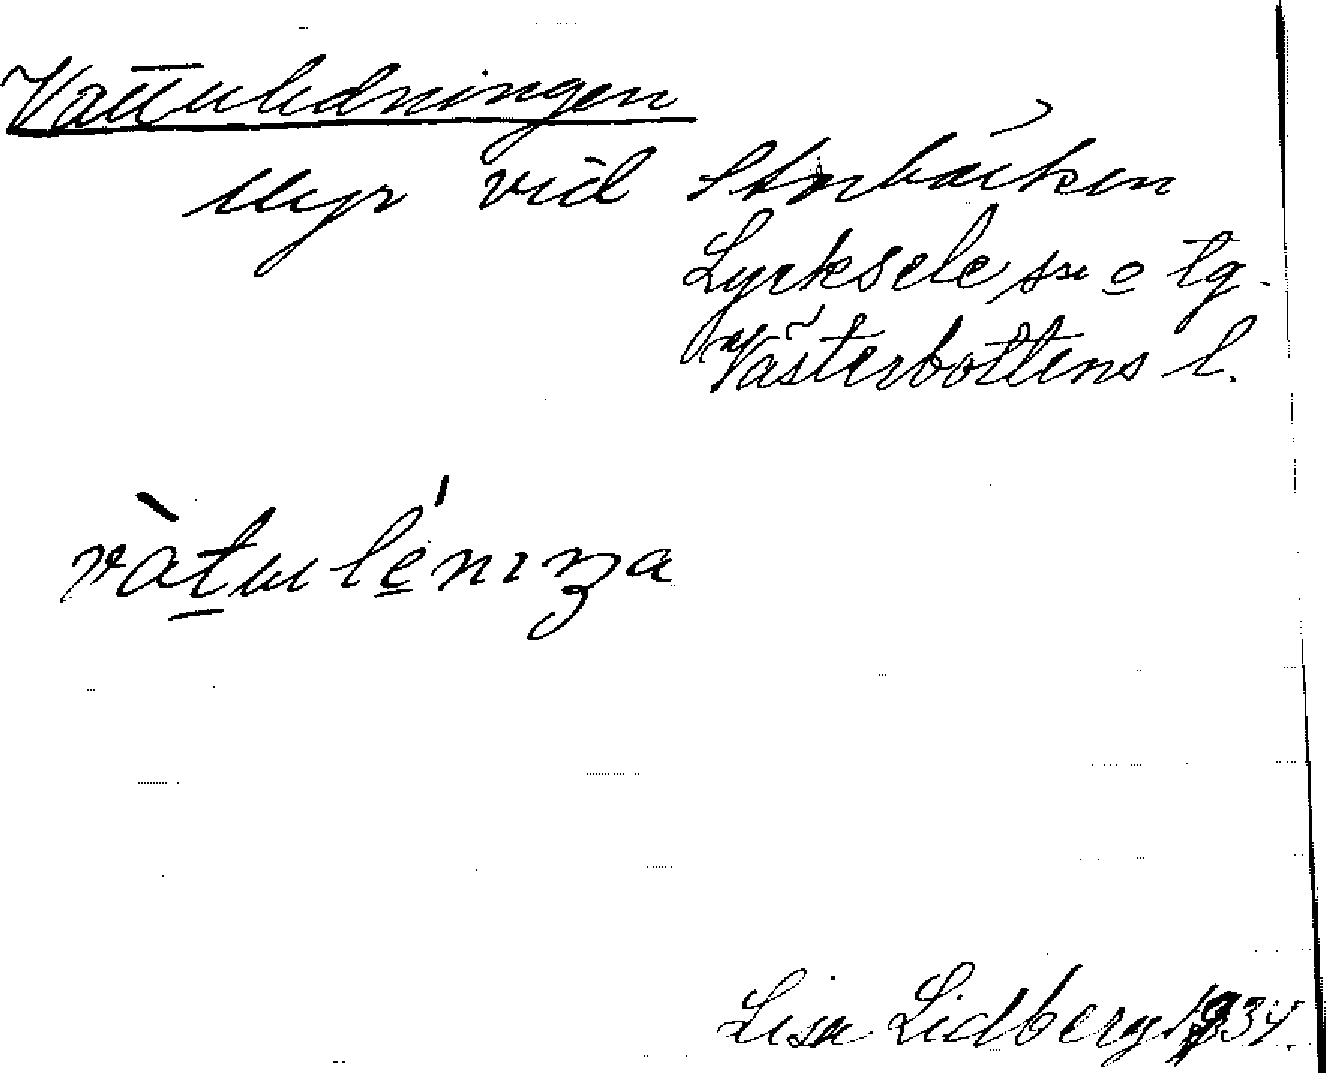 Vattuledningen
Myr vid Stenbäcken
Lycksele sn o tg.
Västerbottens l.
vàtuléniŋa
Lisa Lidberg 1934.